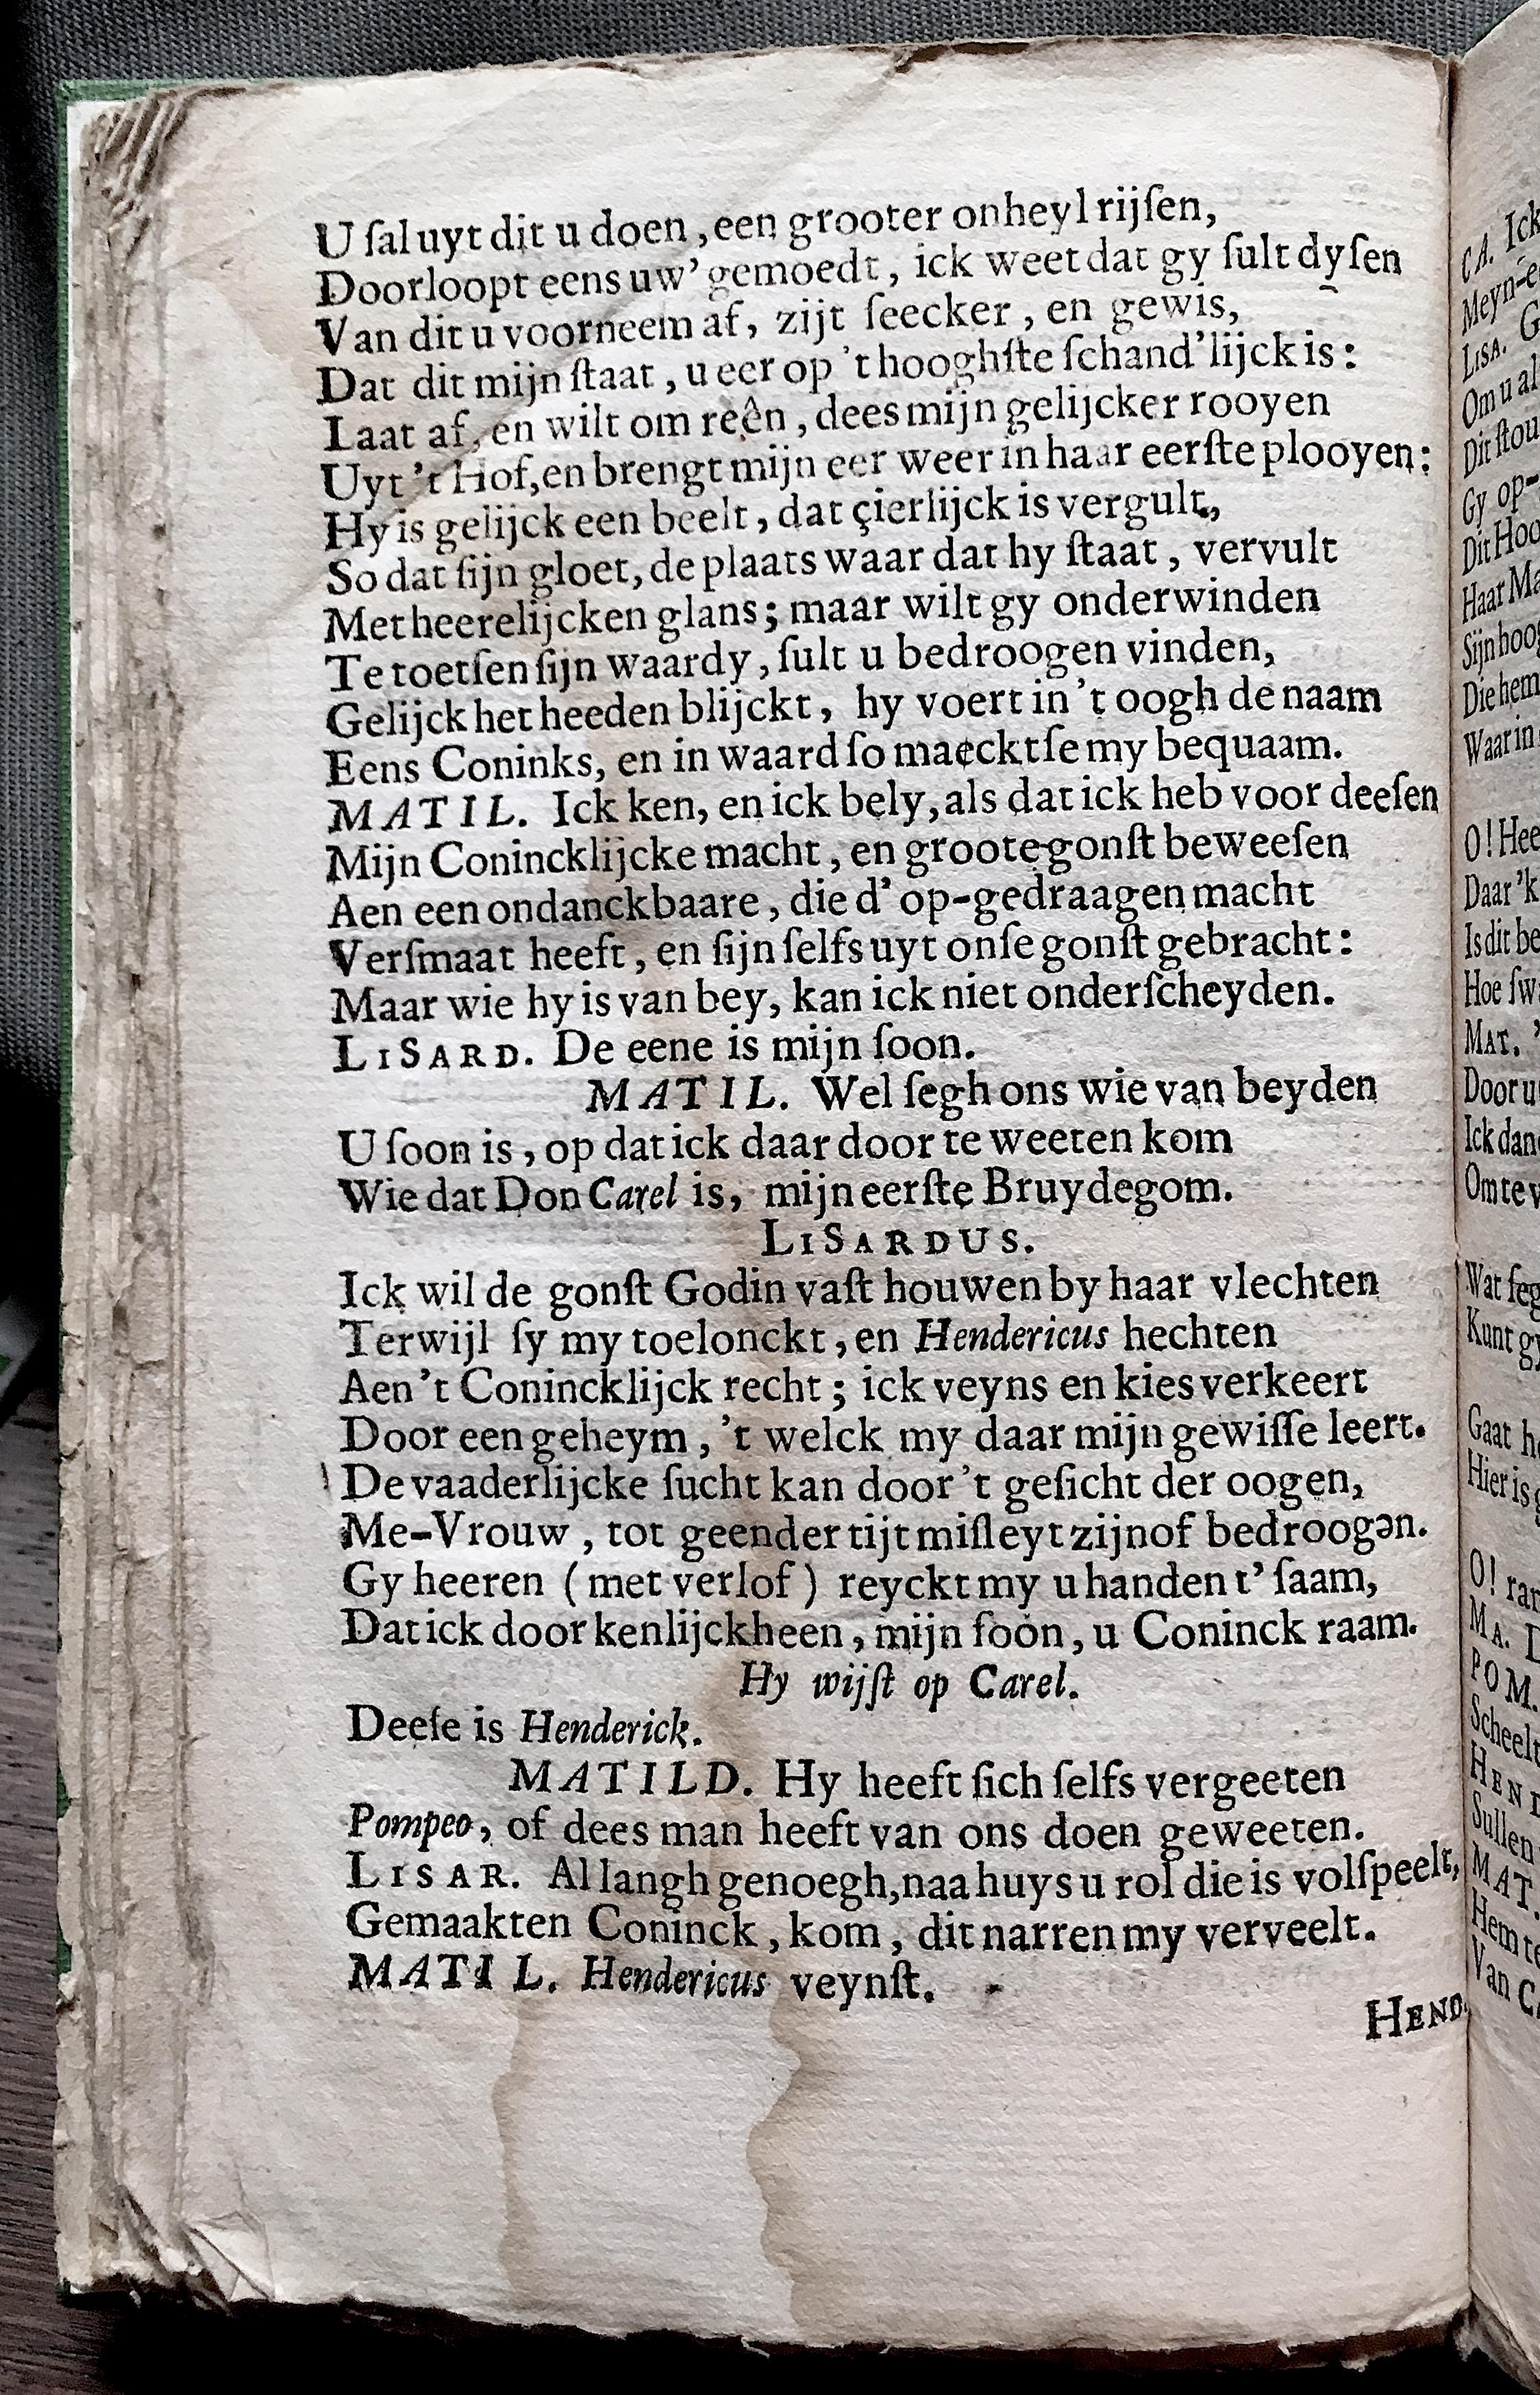 U ſal uyt dit u doen, een grooter onheyl rijſen,
Doorloopt eens uw' gemoedt, ick weet dat gy ſult dyſen
Van dit u voorneem af, zijt ſeecker, en gewis,
Dat dit mijn ſtaat, u eer op 't hooghſte ſchand'lijck is:
Laat af, en wilt om reên, dees mijn gelijcker rooyen
Uyt 't Hof, en brengt mijn eer weer in haar eerſte plooyen:
Hy is gelijck een beelt, dat çierlijck is vergult,
So dat ſijn gloet, de plaats waar dat hy ſtaat, vervult
Met heerelijcken glans; maar wilt gy onderwinden
Te toetſen ſijn waardy, ſult u bedroogen vinden,
Gelijck het heeden blijckt, hy voert in 't oogh de naam
Eens Coninks, en in waard ſo maeckt ſe my bequaam.
MATIL. Ick ken, en ick bely, als dat ick heb voor deeſen
Mijn Conincklijcke macht, en groote gonſt beweeſen
Aen een ondanckbaare, die d' op-gedraagen macht
Verſmaat heeft, en ſijn ſelfs uyt onſe gonſt gebracht:
Maar wie hy is van bey, kan ick niet onderſcheyden.
LISARD. De eene is mijn ſoon.
MATIL. Wel ſegh ons wie van beyden
U ſoon is, op dat ick daar door te weeten kom
Wie dat Don Carel is, mijn eerſte Bruydegom.
LISARDUS.
Ick wil de gonſt Godin vaſt houwen by haar vlechten
Terwijl ſy my toelonckt, en Hendericus hechten
Aen 't Conincklijck recht; ick veyns en kies verkeert
Door een geheym, 't welck my daar mijn gewiſſe leert.
De vaaderlijcke ſucht kan door 't geſicht der oogen,
Me-Vrouw, tot geender tijt miſleyt zijn of bedroogǝn.
Gy heeren (met verlof) reyckt my u handen t' ſaam,
Dat ick door kenlijckheen, mijn ſoon, u Coninck raam.
Hy wijſt op Carel.
Deeſe is Henderick.
MATILD. Hy heeft ſich ſelfs vergeeten
Pompeo, of dees man heeft van ons doen geweeten.
LISAR. Al langh genoegh, naa huys u rol die is volſpeelt,
Gemaakten Coninck, kom, dit narren my verveelt.
MATIL. Hendericus veynſt.
HEND.
CA. Ick
Meyn-e
LISA. G
Om u al
Dit ſtou
Gy op-
Dit Hoo
Haar Ma
Sijn hoog
Die hem
Waar in
O! Hee
Daar 'k
Is dit be
Hoe ſw
MAT. '
Door u
Ick dan
Om te v
Wat ſeg
Kunt gy
Gaat h
Hier is g
O! ran
MA. D
POM.
Scheelt
HEND
Sullen
MAT.
Hem te
Van C